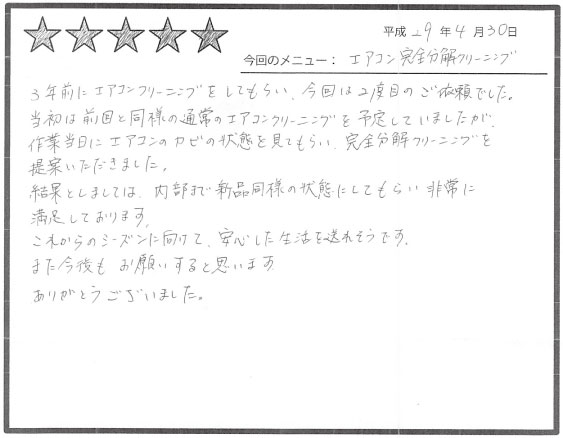 平成 29 年 4 月 30 日
今回のメニュー： エアコン完全分解クリーニング
3年前にエアコンクリーニングをしてもらい、今回は2度目のご依頼でした。
当初は前回と同様の通常のエアコンクリーニングを予定していましたが、
作業当日にエアコンのカビの状態を見てもらい、完全分解クリーニングを
提案いただきました。
結果としましては、内部まで新品同様の状態にしてもらい非常に
満足しております。
これからのシーズンに向けて、安心した生活を送れそうです。
また今後もお願いすると思います
ありがとうございました。